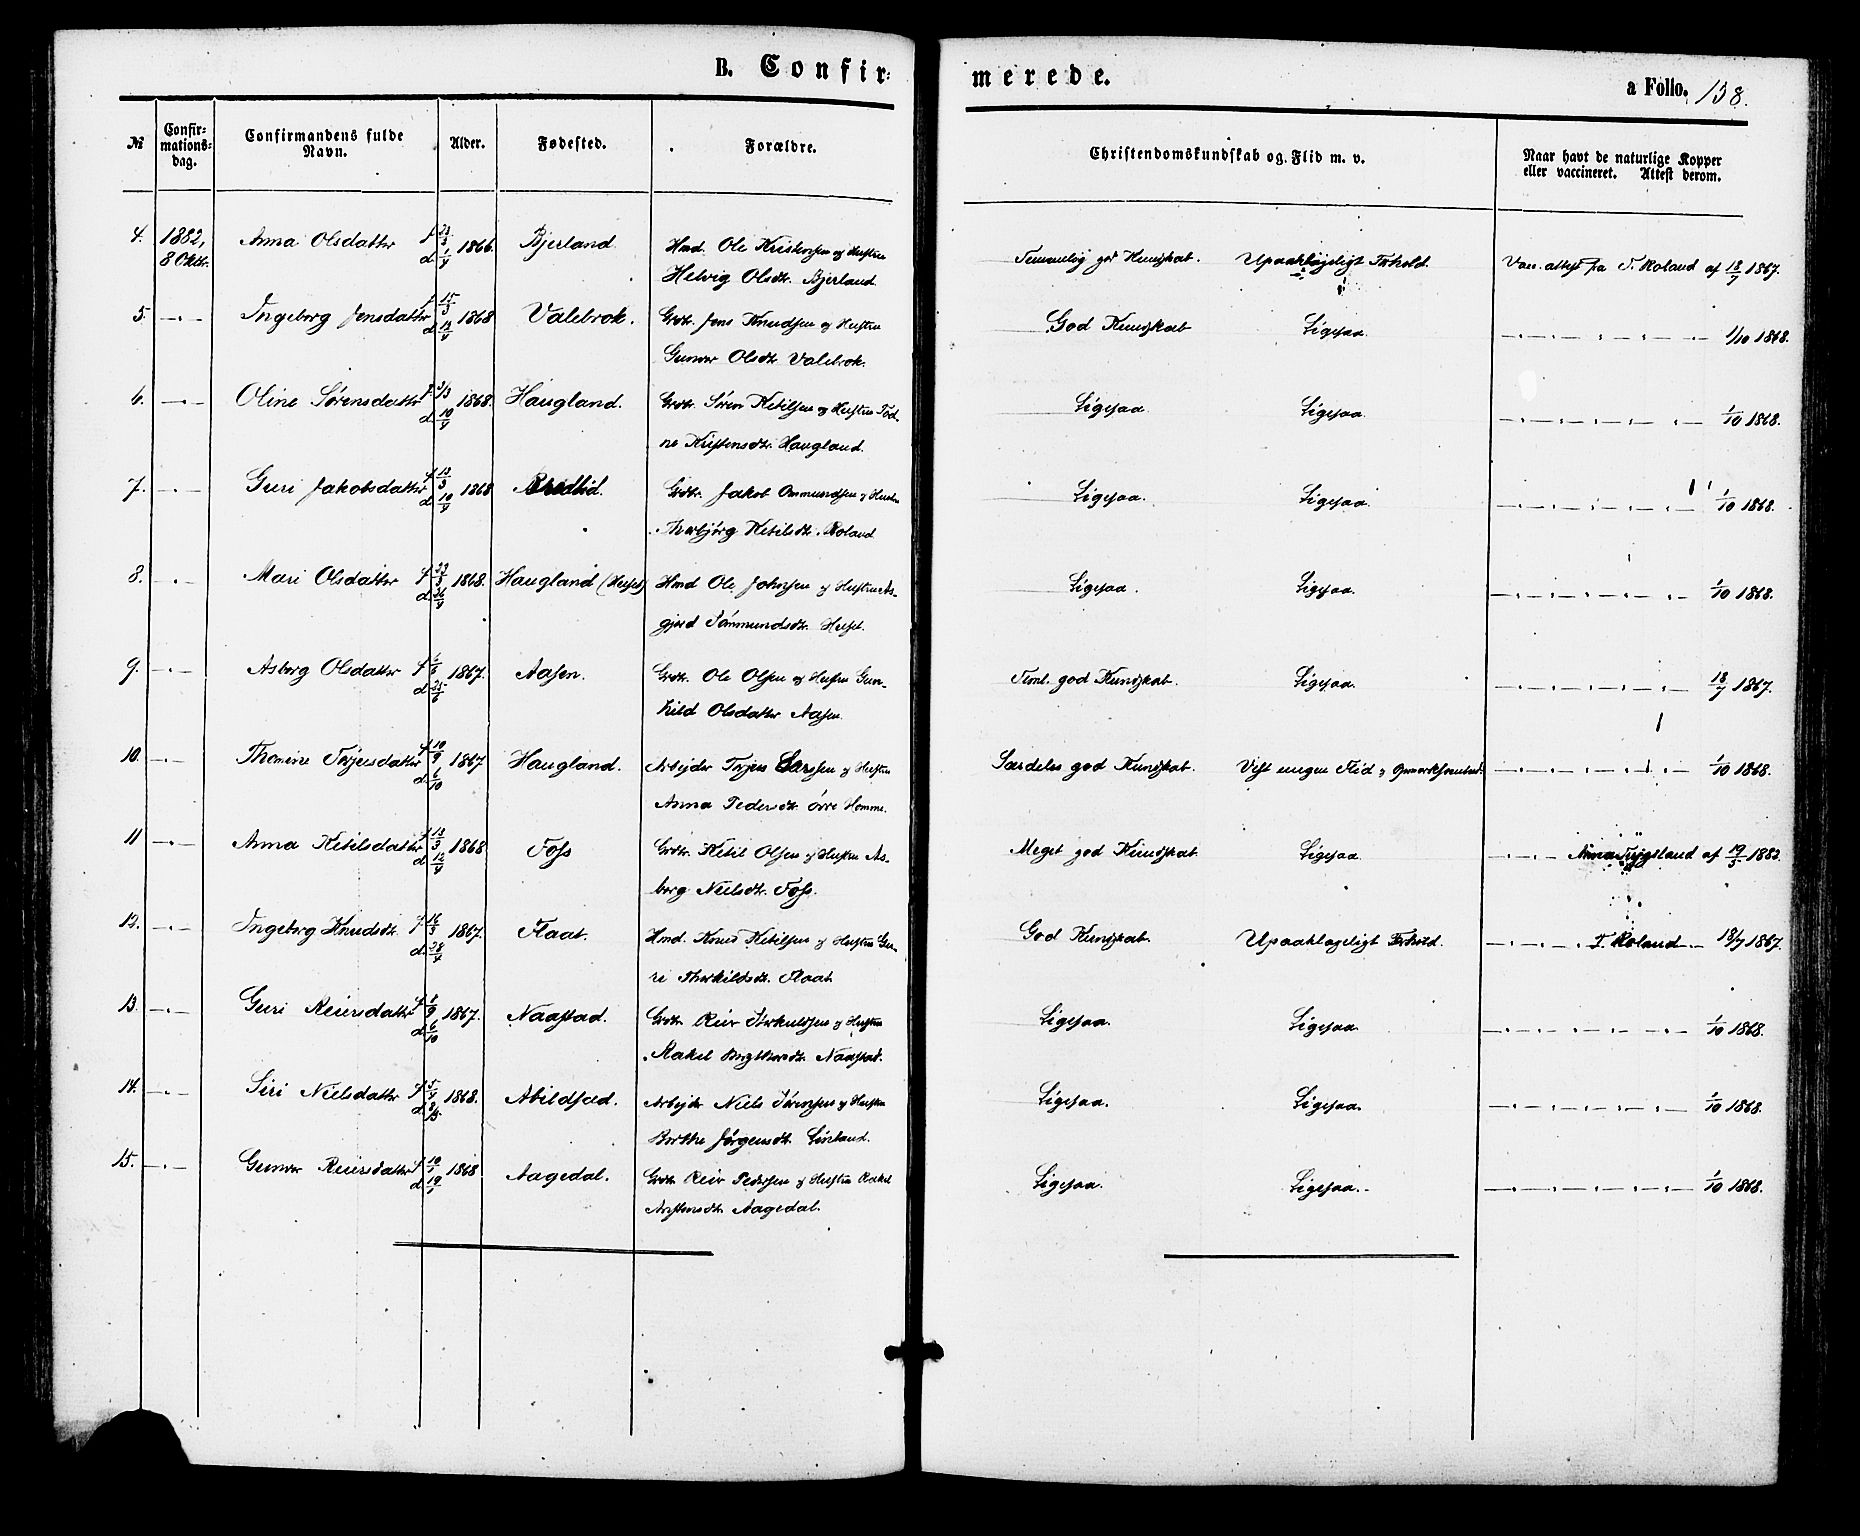 B. Confir-
merede.
a Follo. 138.
№
Confir-
mations-
dag.
Confirmandens fulde
Navn.
Alder.
Fødested.
Forældre.
Christendomskundskab og Flid m. v.
Naar havt de naturlige Kopper
eller vaccineret. Attest derom.
4. 1882, Anna Olsdatter f 1866. Bjerland Hmd. Ole Kristensen og Hustru
8 Oktr. d Helvig Olsdt. Bjerland
Temmelig god Kundskab. Upaaklageligt Forhold. Vac. attest fra T. Roland af 18/7 1867.
5. — " — Ingeborg Jensdatter f 15/3 1868 Valebrok. Grdr. Jens Knudsen og Hustru
d 13/4 Gunvor Olsdt. Valebrok.
God Kundskab Ligesaa. 1/10 1868.
6. — " — Oline Sørensdatter f 3/3 1868. Haugland. Grdr. Søren Ketilsen og Hustru Tod-
d 10/4 ne Kristensdtr. Haugland.
Ligesaa. Ligesaa. 1/10 1868.
7. — " — Guri Jakobsdatter f 13/3 1868 Bredlid. Grdr. Jakob Ommundsen og Hustru
d 10/4 Thorbjørg Ketilsdt. Roland
Ligesaa. Ligesaa. 1/10 1868.
8. — " — Mari Olsdatter f 23/3 1868. Haugland (Huset) Hmd Ole Johnsen og Hustru As-
d 26/4 gjerd Tormundsdt. Huset.
Ligesaa. Ligesaa. 1/10 1868.
9. — " — Asborg Olsdatter f 1867. Aasen. Grdr. Ole Olsen og Hustru Gun-
d 25/6 hild Olsdatter Aasen.
Teml. god Kundskab. Ligesaa. 18/7 1867.
10. — " — Thomine Terjesdatter f 10/9 1867 Haugland. Arbejder Terjus Larssen og Hustru
d 6/10 Anna Pedersdt. Øvre Homme.
Særdeles god Kundskab. Vist megen Flid og Opmærksomhed. 1/10 1868.
11 — " — Anna Ketilsdatter f 13/3 1868 Foss Grdr. Ketil Olsen og Hustru As-
d 12/4 borg Nielsdt. Foss.
Meget god Kundskab Ligesaa Anna Tusland af 19/5 1882.
12. — " — Ingeborg Knudsdt. f 16/3 1867. Flaat. Hmd. Knud Ketilsen og Hustru Gu-
d 28/4 ri Thorkildsdt. Flaat
God Kundskab. Upaaklageligt Forhold. T. Roland 18/7 1867.
13. — " — Guri Reiersdatter f 1867. Naastad. Grdr. Reier Torkildsen og Hustru
d 6/10 Rakel Bergthorsdt. Naastad.
Ligesaa. Ligesaa 1/10 1868.
14. — " — Siri Nielsdatter f 5/4 1868. Abildstad. Arbejder Niels Sørensen og Hustru
d Berthe Jørgensdt. Lineland.
Ligesaa. Ligesaa. 1/10 1868.
15. — " — Gunvor Reiersdatter f 10/1 1868 Aagedal. Grdr. Reier Pedersen og Hustru Rakel
d 19/1 Aristensdt. Aagedal.
Ligesaa. Ligesaa. 1/10 1868.